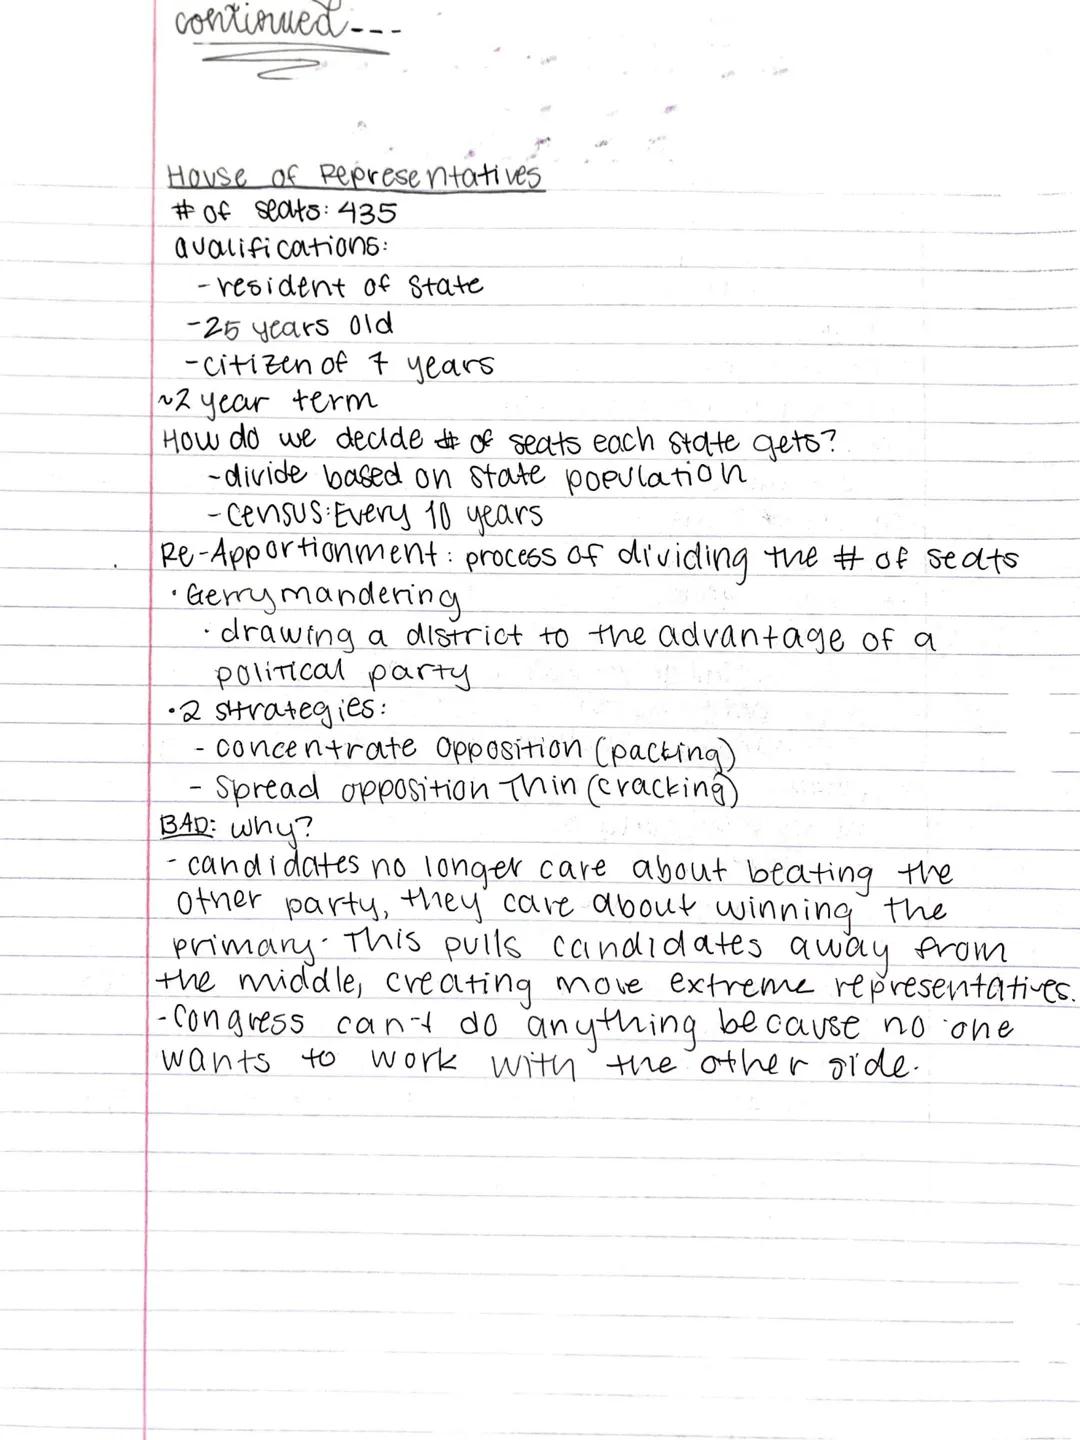 continued---
House of Representatives
# of seats: 435
Qualifications:
- resident of State
- 25 years old
- citizen of 7 years
~2 year term
How do we decide # of seats each state gets?
- divide based on state population
- census: Every 10 years
Re-Apportionment: process of dividing the # of seats
• Gerrymandering
• drawing a district to the advantage of a
political party
• 2 strategies:
- concentrate opposition (packing)
- Spread opposition Thin (cracking)
BAD: why?
- candidates no longer care about beating the
other party, they care about winning the
primary. This pulls candidates away from
the middle, creating more extreme representatives.
- Congress can't do anything because no one
wants to work with the other side.